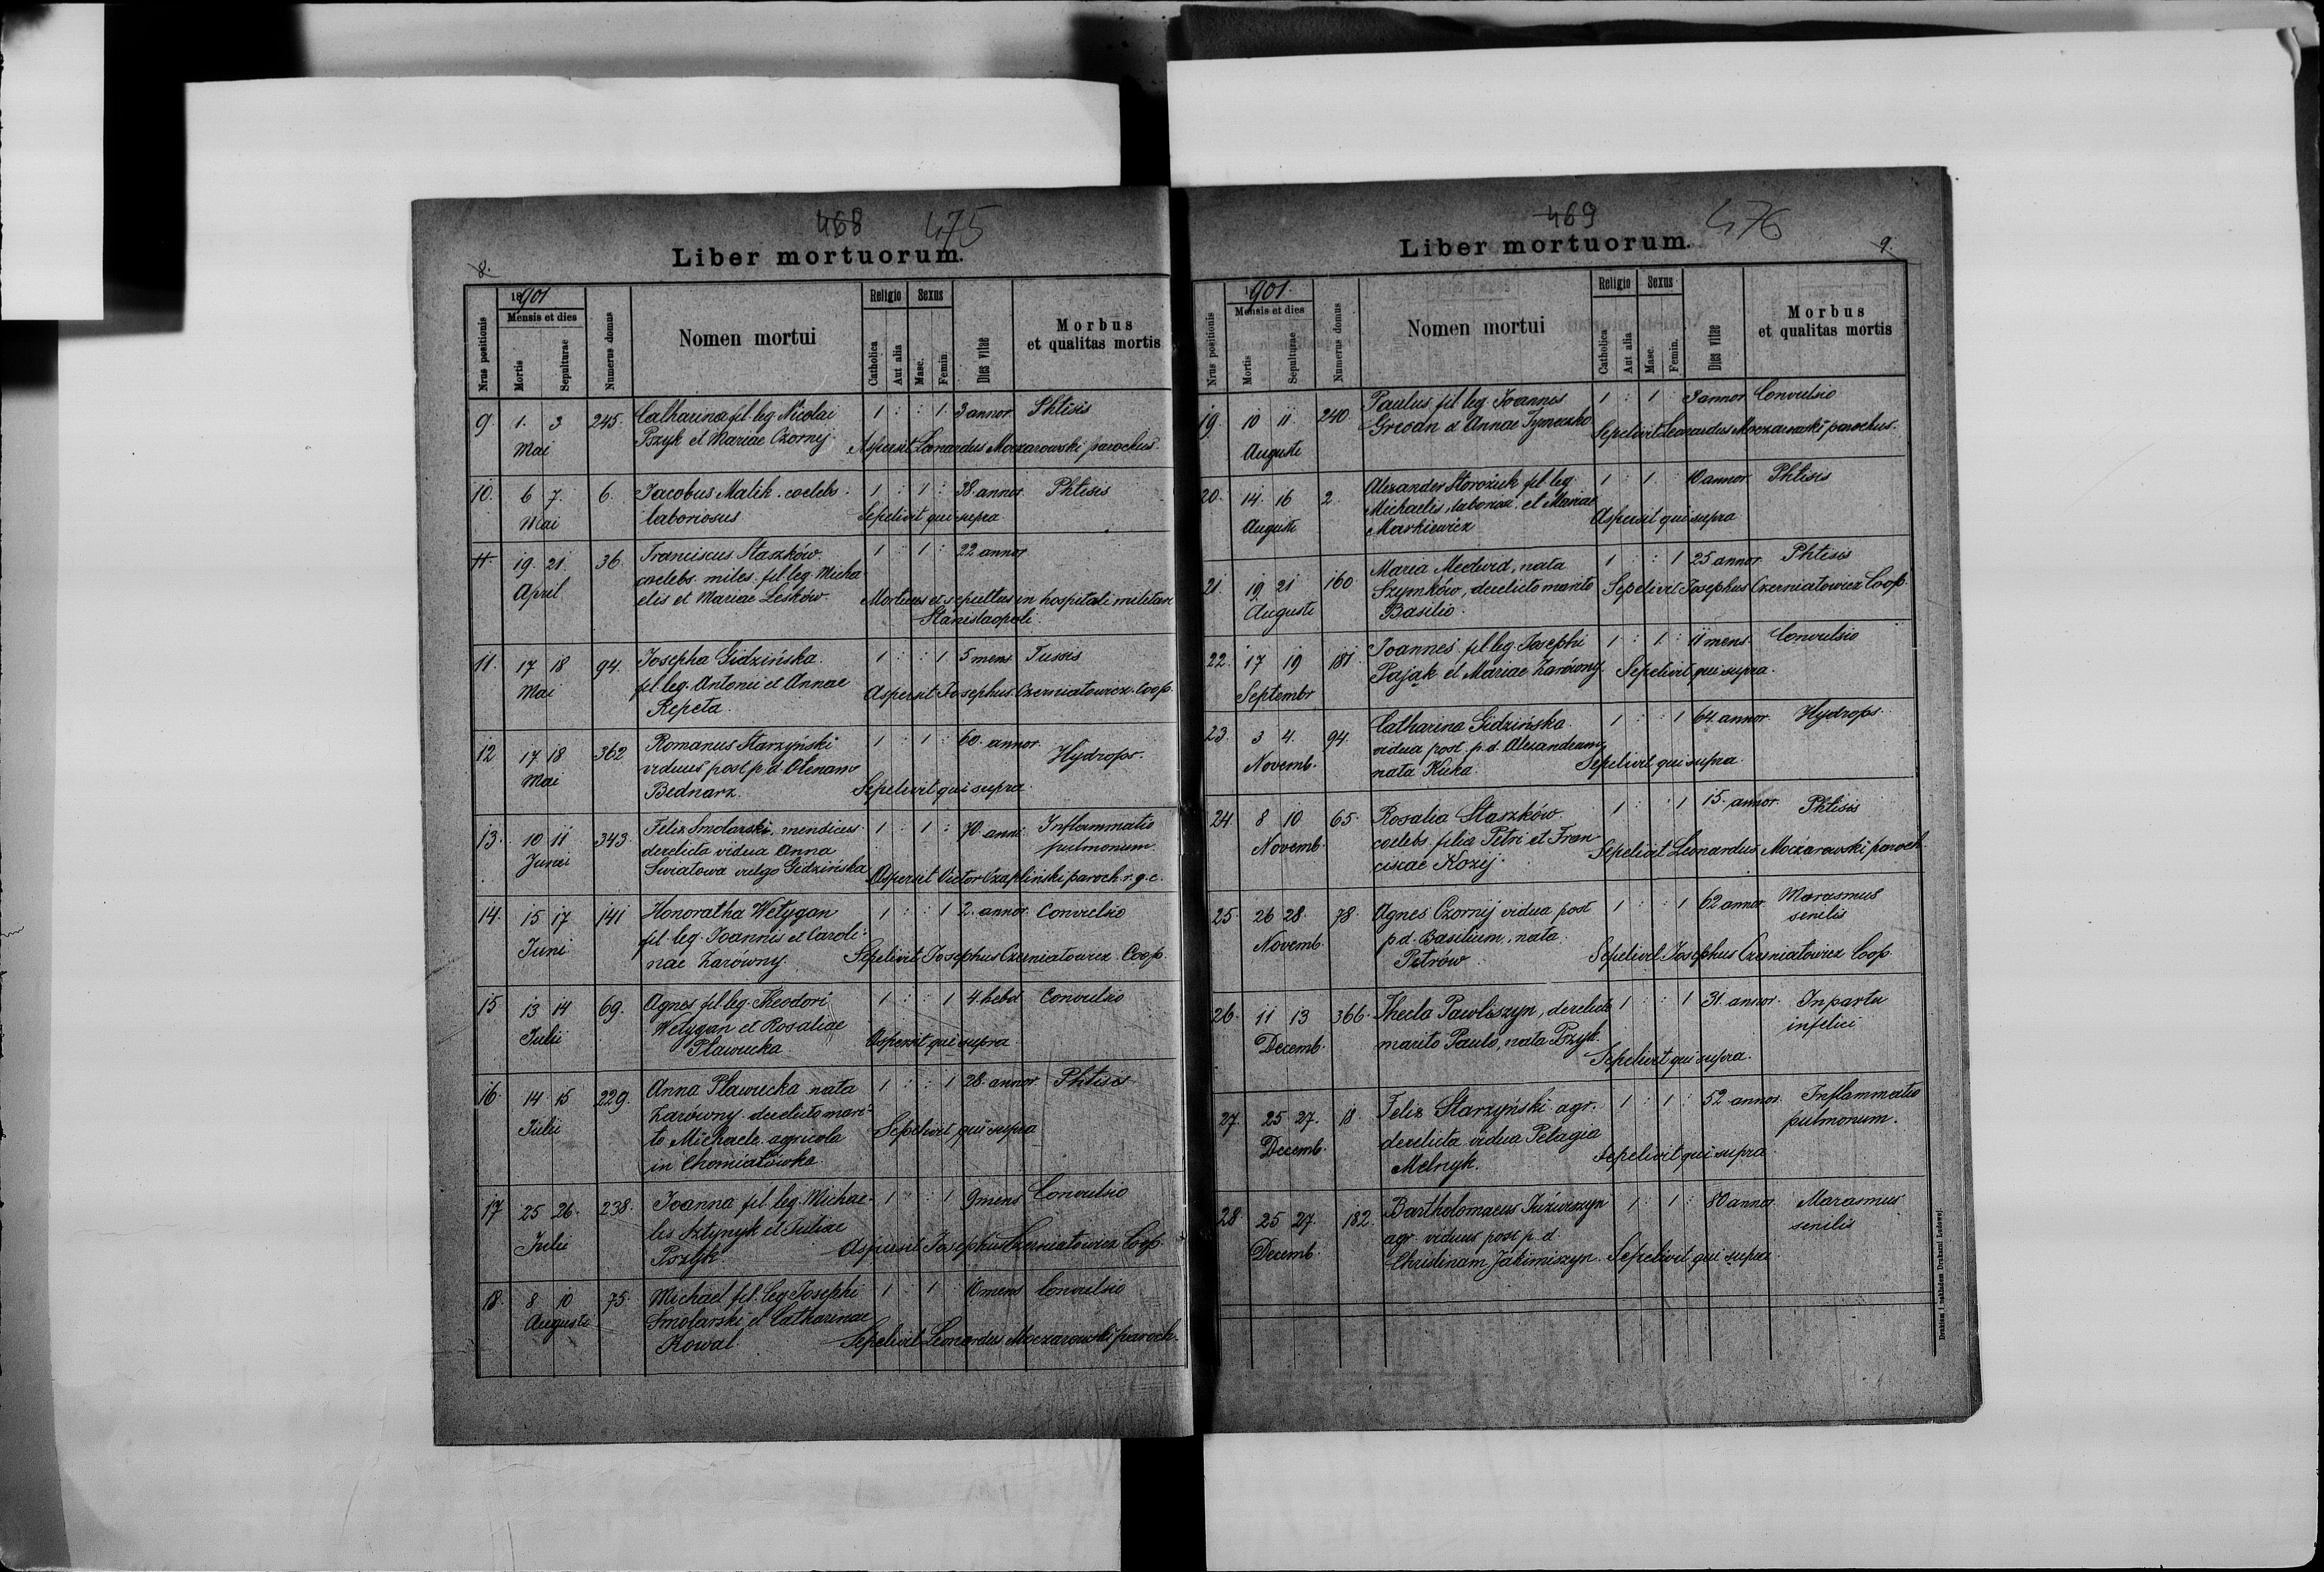 468 475
Liber mortuorum.
8.
Nrus positionis
1901
Mensis et dies
Mortis
Sepulturae
Numerus domus
Nomen mortui
Religio
Catholica
Aut alia
Sexus
Masc.
Femin.
Dies vitae
Morbus
et qualitas mortis
9. 1. 3 245. Catharina fil. leg. Nicolai 1 : : 1 3 annor. Phtisis
Mai Pszyk et Mariae Czornyj. Aspersit Leonardus Moczarowski parochus.
10. 6 7. 6. Jacobus Malik. coelebs. 1 : 1 : 38. annor. Phtisis
Mai laboriosus Sepelivit qui supra
19. 21. 36. Franciscus Staszków. 1 : 1 : 22 annor.
April coelebs. miles. fil. leg. Micha
elis et Mariae Leśków. Mortuus et sepultus in hospitali militari
Stanislaopoli.
11. 17 18 94. Josepha Gidzińska. 1 : : 1 5 mens Tussis
Mai fil. leg. Antonii et Annae Aspersit Josephus Czerniatowicz. Coop.
Repeta.
12 17 18 362 Romanus Starzyński 1 : 1 : 60. annor. Hydrops.
Mai viduus post p. d. Olenam
Bednarz. Sepelivit qui supra.
13. 10 11 343. Felix Smolarski, mendicus. 1 : 1 : 70 anni. Inflammatio
Junii derelicta vidua Anna pulmonum.
Swiatowa vulgo Gidzińska Aspersit Victor Czapliński paroch. r. g. c.
14. 15 17 141 Honoratha Wetygan 1 : : 1 2. annor. Convulsio
Juni fil. leg. Joannis et Caroli-
nae Zarówny. Sepelivit Josephus Czerniatowicz. Coop.
15 13 14 69. Agnes fil. leg. Theodori 1 : : 1 4. hebd Convulsio
Julii Wetygan et Rosaliae
Pławucka Aspersit qui supra.
16. 14 15 229. Anna Pławucka nata 1 : : 1 28. annor Phtisis
Julii Zarówny. derelicto mari-
to Michaele. agricola Sepelivit qui supra
in Chomiakówka.
17 25 26. 238. Joanna fil. leg. Michae- 1 : : 1 9 mens Convulsio
Julii lis Sztynyk et Juliae
Pszyk. Aspersit Josephus Czerniatowicz Coop.
18. 8 10 75. Michael fil. leg. Josephi 1 : 1 : 10 mens Convulsio
Augusti Smolarski et Catharinae
Kowal. Sepelivit Leonardus Moczarowski paroch.
469 476
Liber mortuorum.
9.
Nrus positionis
1901.
Mensis et dies
Mortis
Sepulturae
Numerus domus
Nomen mortui
Religio
Catholica
Aut alia
Sexus
Masc.
Femin.
Dies vitae
Morbus
et qualitas mortis
19. 10 11 240. Paulus fil. leg. Joannis 1 : 1 : 3 annor Convulsio
Augusti et Annae Sepelivit Leonardus Moczarowski parochus.
20. 14. 16 2. Alexander Storożuk fil. leg. 1 : 1 : 10 annor. Phtisis
Augusti Michaelis, laborios. et Mariae
Markiewicz Aspersit qui supra
21. 19 21 160 Maria Medwid, nata 1 : : 1 25 annor. Phtisis
Augusti Szymków, derelicto marito Sepelivit Josephus Czerniatowicz Coop.
Basilio.
22. 17 19 181. Joannes fil. leg. Josephi 1 : 1 : 11 mens. Convulsio
Septembr Pająk et Mariae Zarówny. Sepelivit qui supra.
23. 3 4. 94. Catharina Gidzińska. 1 : : 1 64. annor. Hydrops.
Novemb. vidua post. p. d. Alexandrum,
nata Kuka. Sepelivit qui supra.
24. 8 10 65. Rosalia Staszków. 1 : : 1 15. annor. Phtisis
Novemb. coelebs. filia Petri et Fran
ciscae Kozij. Sepelivit Leonardus Moczarowski paroch.
25. 26 28. 78. Agnes Czornyj vidua post 1 : : 1 62 annor. Marasmus
Novemb. p. d. Basilium, nata senilis
Petrów. Sepelivit Josephus Czerniatowicz Coop.
26. 11 13 366. Thecla Pawliszyn, derelicto 1 : : 1 31. annor. In partu
Decemb. marito Paulo, nata Pszyk. infelici
Sepelivit qui supra.
27. 25 27. 18. Felix Starzyński agr. 1 : 1 : 52 annor. Inflammatio
Decemb. derelicta vidua Pelagia pulmonum.
Melnyk. Sepelivit qui supra
28 25 27. 182. Bartholomaeus Juźwiszyn 1 : 1 : 80 annor. Marasmus
Decemb. agr. viduus post p. d. senilis
Christinam Jakimiszyn. Sepelivit qui supra.
Drukiem i nakładem Drukarni Ludowej.